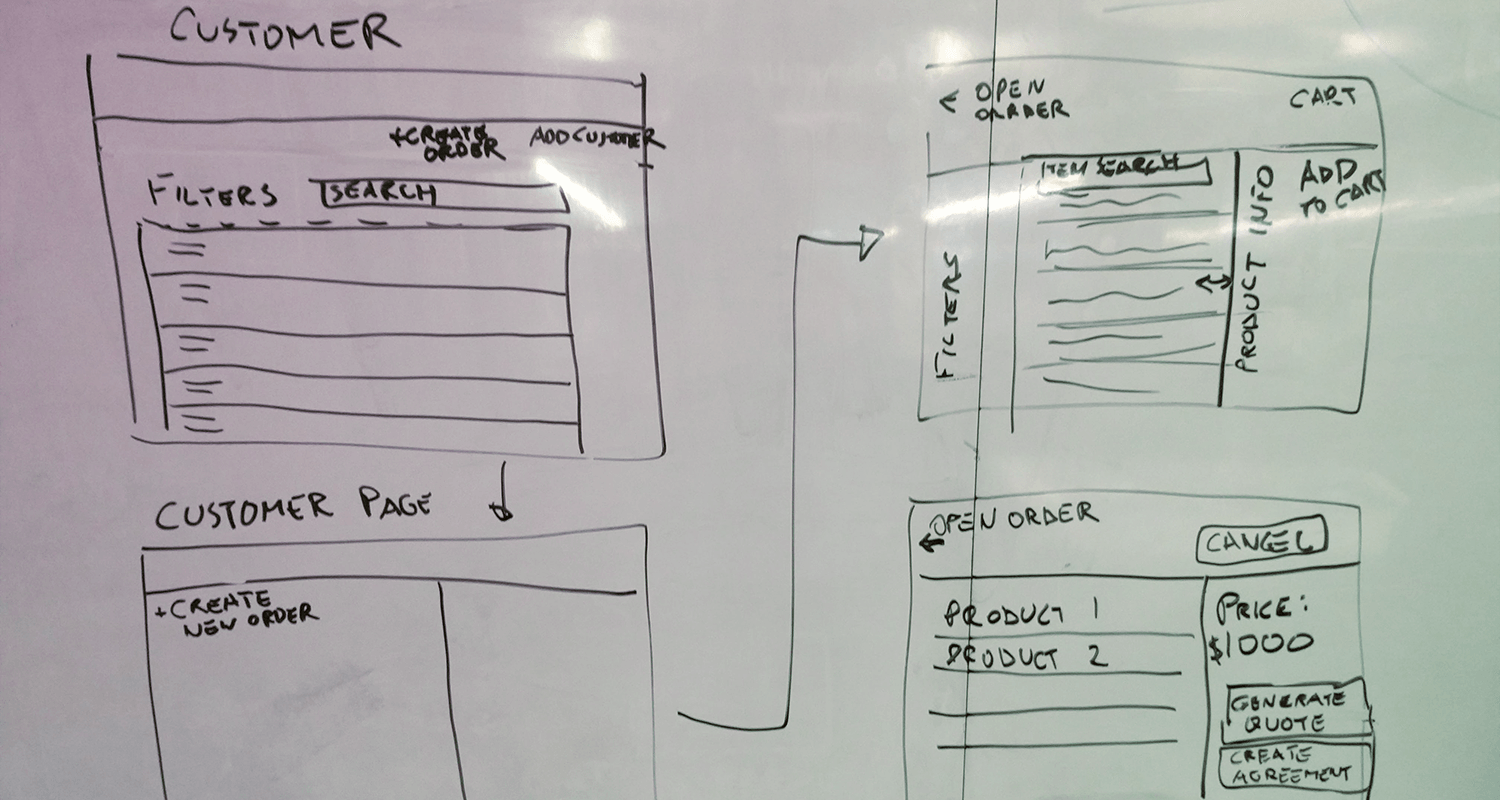 CUSTOMER
+CREATE
ORDER
ADD CUSTOMER
FILTERS
SEARCH
CUSTOMER PAGE
+CREATE
NEW ORDER
< OPEN
ORDER
CART
ITEM SEARCH
FILTERS
PRODUCT INFO
ADD
TO CART
OPEN ORDER
CANCEL
PRODUCT 1
PRODUCT 2
PRICE:
$1000
GENERATE
QUOTE
CREATE
AGREEMENT